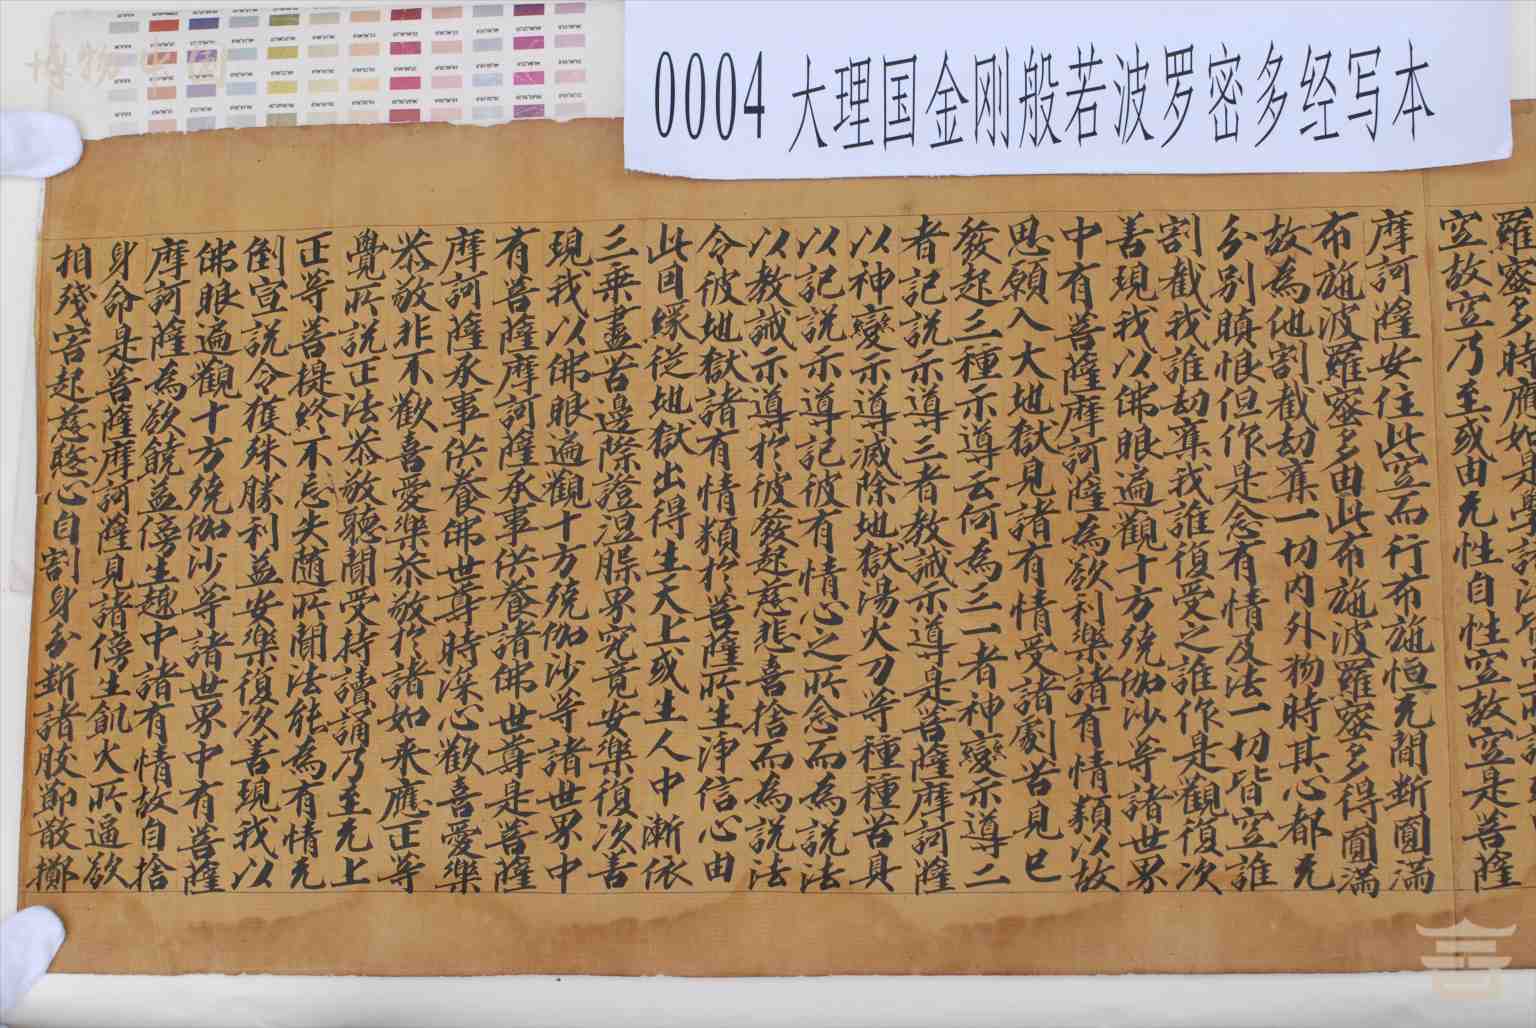 0004 大理国金刚般若波罗密多经写本
羅蜜多時應如是學諸法
空故空乃至或由无性自性空故空是菩薩
摩訶薩安住此空而行布施恒无間斷圓滿
布施波羅蜜多由此布施波羅蜜多得圓滿
故為他割截劫奪一切內外物時其心都无
分別瞋恨但作是念有情及法一切皆空誰
割截我誰劫奪我誰復受之誰作是觀復次
善現我以佛眼遍觀十方殑伽沙等諸世界
中有菩薩摩訶薩為欲利樂諸有情類以故
思願入大地獄見諸有情受諸劇苦見已
發起三種示導云何為三一者神變示導二
者記說示導三者教誡示導是菩薩摩訶薩
以神變示導滅除地獄湯火刀等種種苦具
以記說示導記彼有情心之所念而為說法
以教誡示導於彼發起慈悲喜捨而為說法
令彼地獄諸有情類於菩薩所生淨信心由
此因緣從地獄出得生天上或生人中漸依
三乘盡苦邊際證涅槃界究竟安樂復次善
現我以佛眼遍觀十方殑伽沙等諸世界中
有菩薩摩訶薩承事供養諸佛世尊是菩薩
摩訶薩承事供養佛世尊時深心歡喜愛樂
恭敬非不歡喜愛樂恭敬於諸如来應正等
覺所說正法恭敬聽聞受持讀誦乃至无上
正等菩提終不忘失随所聞法能為有情无
倒宣說令獲殊勝利益安樂復次善現我以
佛眼遍觀十方殑伽沙等諸世界中有菩薩
摩訶薩為欲饒益傍生趣中諸有情故自捨
身命是菩薩摩訶薩見諸傍生飢火所逼欲
相殘害起慈愍心自割身分斷諸肢節散擲